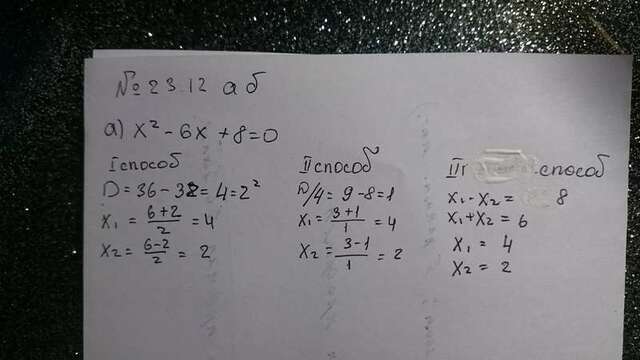 № 23.12 а б
а) x² - 6x + 8 = 0
I способ
D = 36 - 32 = 4 = 2²
x₁ = (6+2)/2 = 4
x₂ = (6-2)/2 = 2
II способ
D/4 = 9 - 8 = 1
x₁ = (3+1)/1 = 4
x₂ = (3-1)/1 = 2
способ
x₁ · x₂ = 8
x₁ + x₂ = 6
x₁ = 4
x₂ = 2